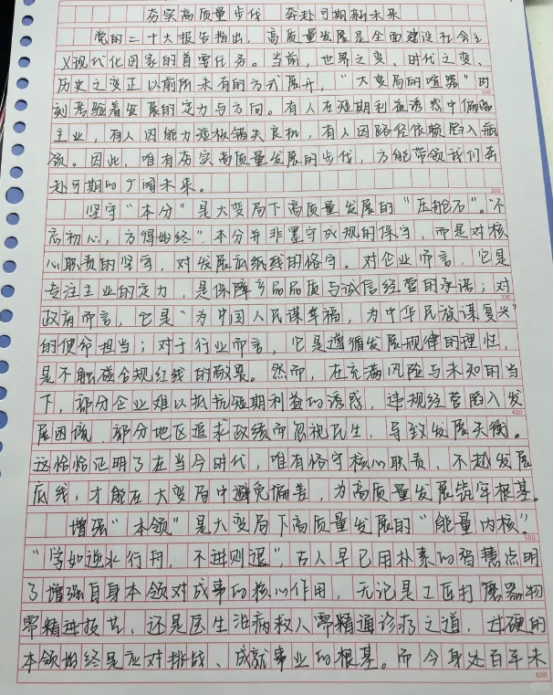 夯实高质量步伐 奔赴可期新未来
党的二十大报告指出，高质量发展是全面建设社会主
义现代化国家的首要任务。当前，世界之变、时代之变、
历史之变正以前所未有的方式展开，“大变局的喧嚣”时
刻考验着发展的定力与方向。有人在短期利益诱惑中偏离
主业，有人因能力短板错失良机，有人因路径依赖陷入瓶
颈。因此，唯有夯实高质量发展的步伐，方能带领我们奔
赴可期的广阔未来。
坚守“本分”是大变局下高质量发展的“压舱石”。“不
忘初心，方得始终”本分并非墨守成规的保守，而是对核
心职责的坚守，对发展底线的恪守。对企业而言，它是
专注主业的定力，是保障产品品质与诚信经营的承诺；对
政府而言，它是“为中国人民谋幸福，为中华民族谋复兴”
的使命担当；对于行业而言，它是遵循发展规律的理性，
是不触碰合规红线的敬畏。然而，在充满风险与未知的当
下，部分企业难以抵抗短期利益的诱惑，违规经营陷入发
展困境，部分地区追求政绩而忽视民生，导致发展失衡。
这恰恰证明了在当今时代，唯有恪守核心职责，不越发展
底线，才能在大变局中避免偏差，为高质量发展筑牢根基。
增强“本领”是大变局下高质量发展的“能量内核”。
“学如逆水行舟，不进则退”，古人早已用朴素的智慧点明
了增强自身本领对成事的核心作用，无论是工匠打磨器物
需精进技艺，还是医生治病救人需精通诊疗之道，过硬的
本领始终是应对挑战、成就事业的根基。而今身处百年未